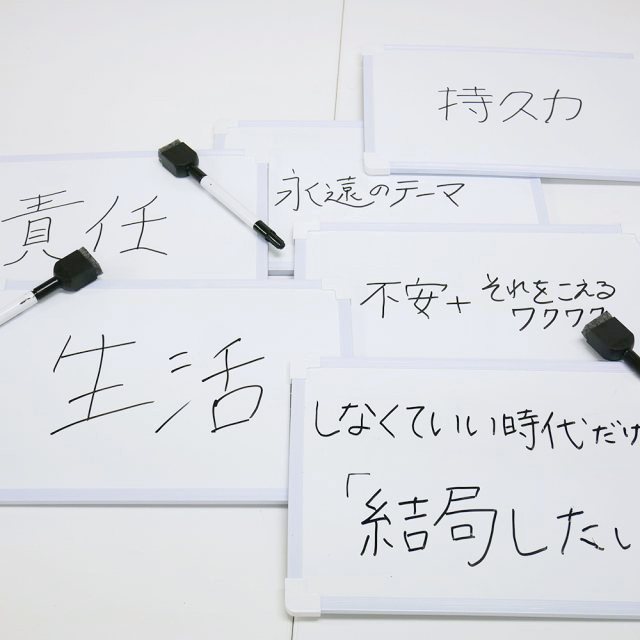 持久力
永遠のテーマ
責任
不安+それをこえる
ワクワク
生活
しなくていい時代だけ
「結局したい